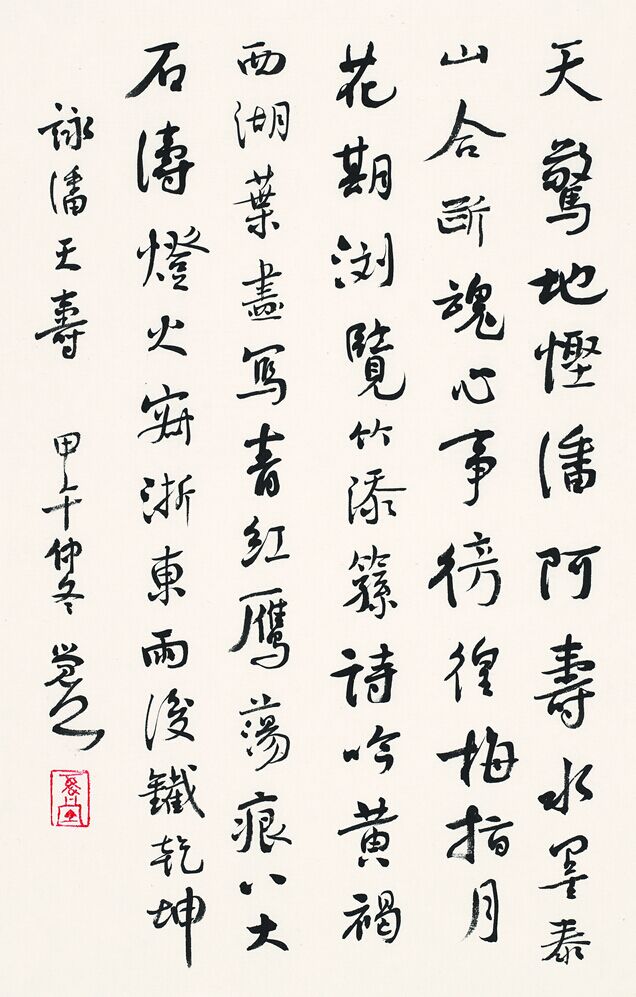 天驚地慳潘阿壽水墨泰
山合断魂心事徬徨梅指月
花期浏覽竹添詩吟黄褐
西湖葉盡寫青紅鴈蕩痕八大
石濤燈火浙東雨後鐵乾坤
詠潘天壽 甲午仲冬